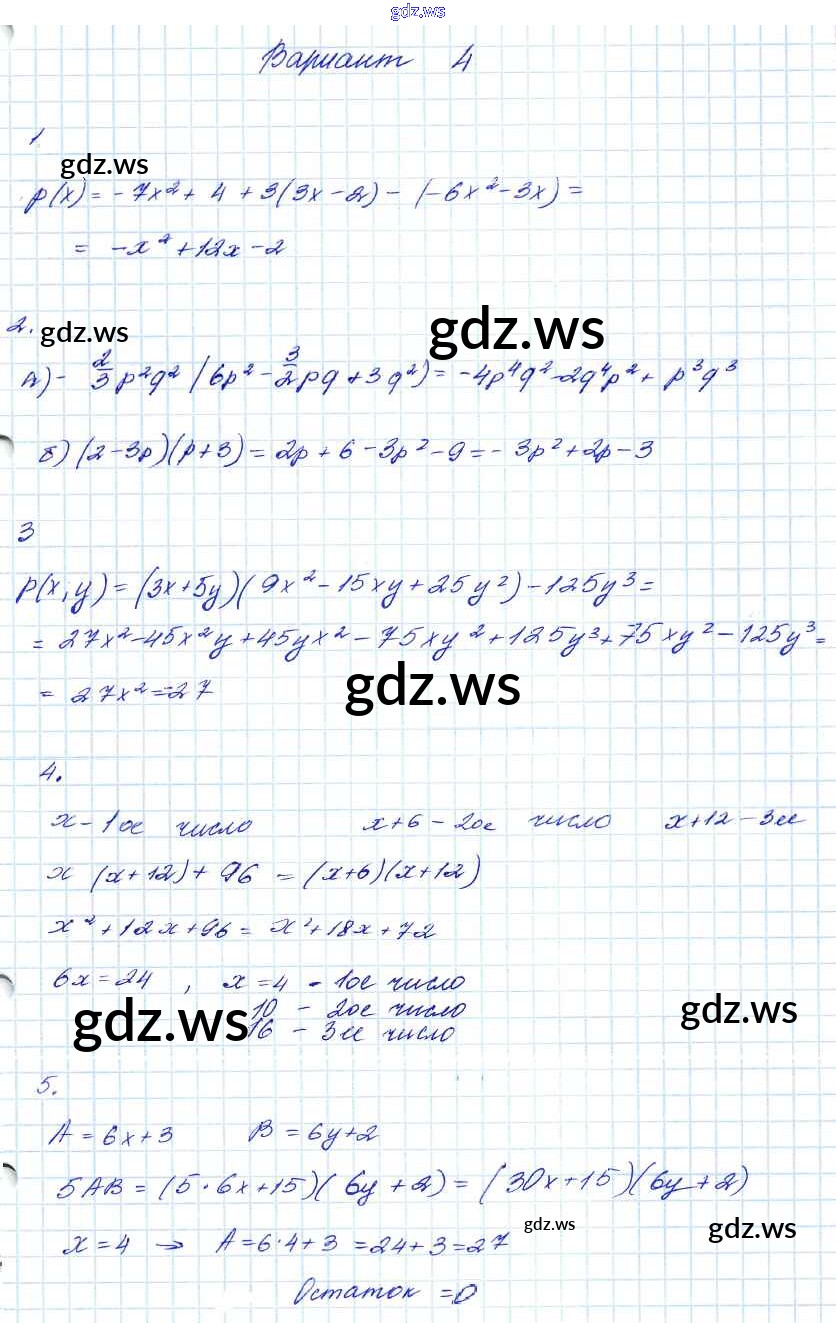 gdz.ws
Вариант 4
1
gdz.ws
p(x) = -7x² + 4 + 3(3x-2) - (-6x²-3x) =
= -x² + 12x - 2
2.
gdz.ws
gdz.ws
а) - 2/3 p²q² (6p² - 3/2 pq + 3q²) = -4p⁴q² - 2q⁴p² + p³q³
б) (2-3p)(p+3) = 2p + 6 - 3p² - 9 = - 3p² + 2p - 3
3
p(x,y) = (3x+5y)(9x² - 15xy + 25y²) - 125y³ =
= 27x² - 45x²y + 45yx² - 75xy² + 125y³ + 75xy² - 125y³ =
= 27x² = 27
gdz.ws
4.
x - 1ое число x+6 - 2ое число x+12 - 3ее
x (x+12) + 96 = (x+6)(x+12)
x² + 12x + 96 = x² + 18x + 72
6x = 24 , x = 4 - 1ое число
10 - 2ое число
gdz.ws
gdz.ws
16 - 3ее число
5.
A = 6x+3 B = 6y+2
5AB = (5·6x+15)(6y+2) = (30x+15)(6y+2)
gdz.ws
gdz.ws
x = 4 → A = 6·4+3 = 24+3 = 27
Остаток = 0